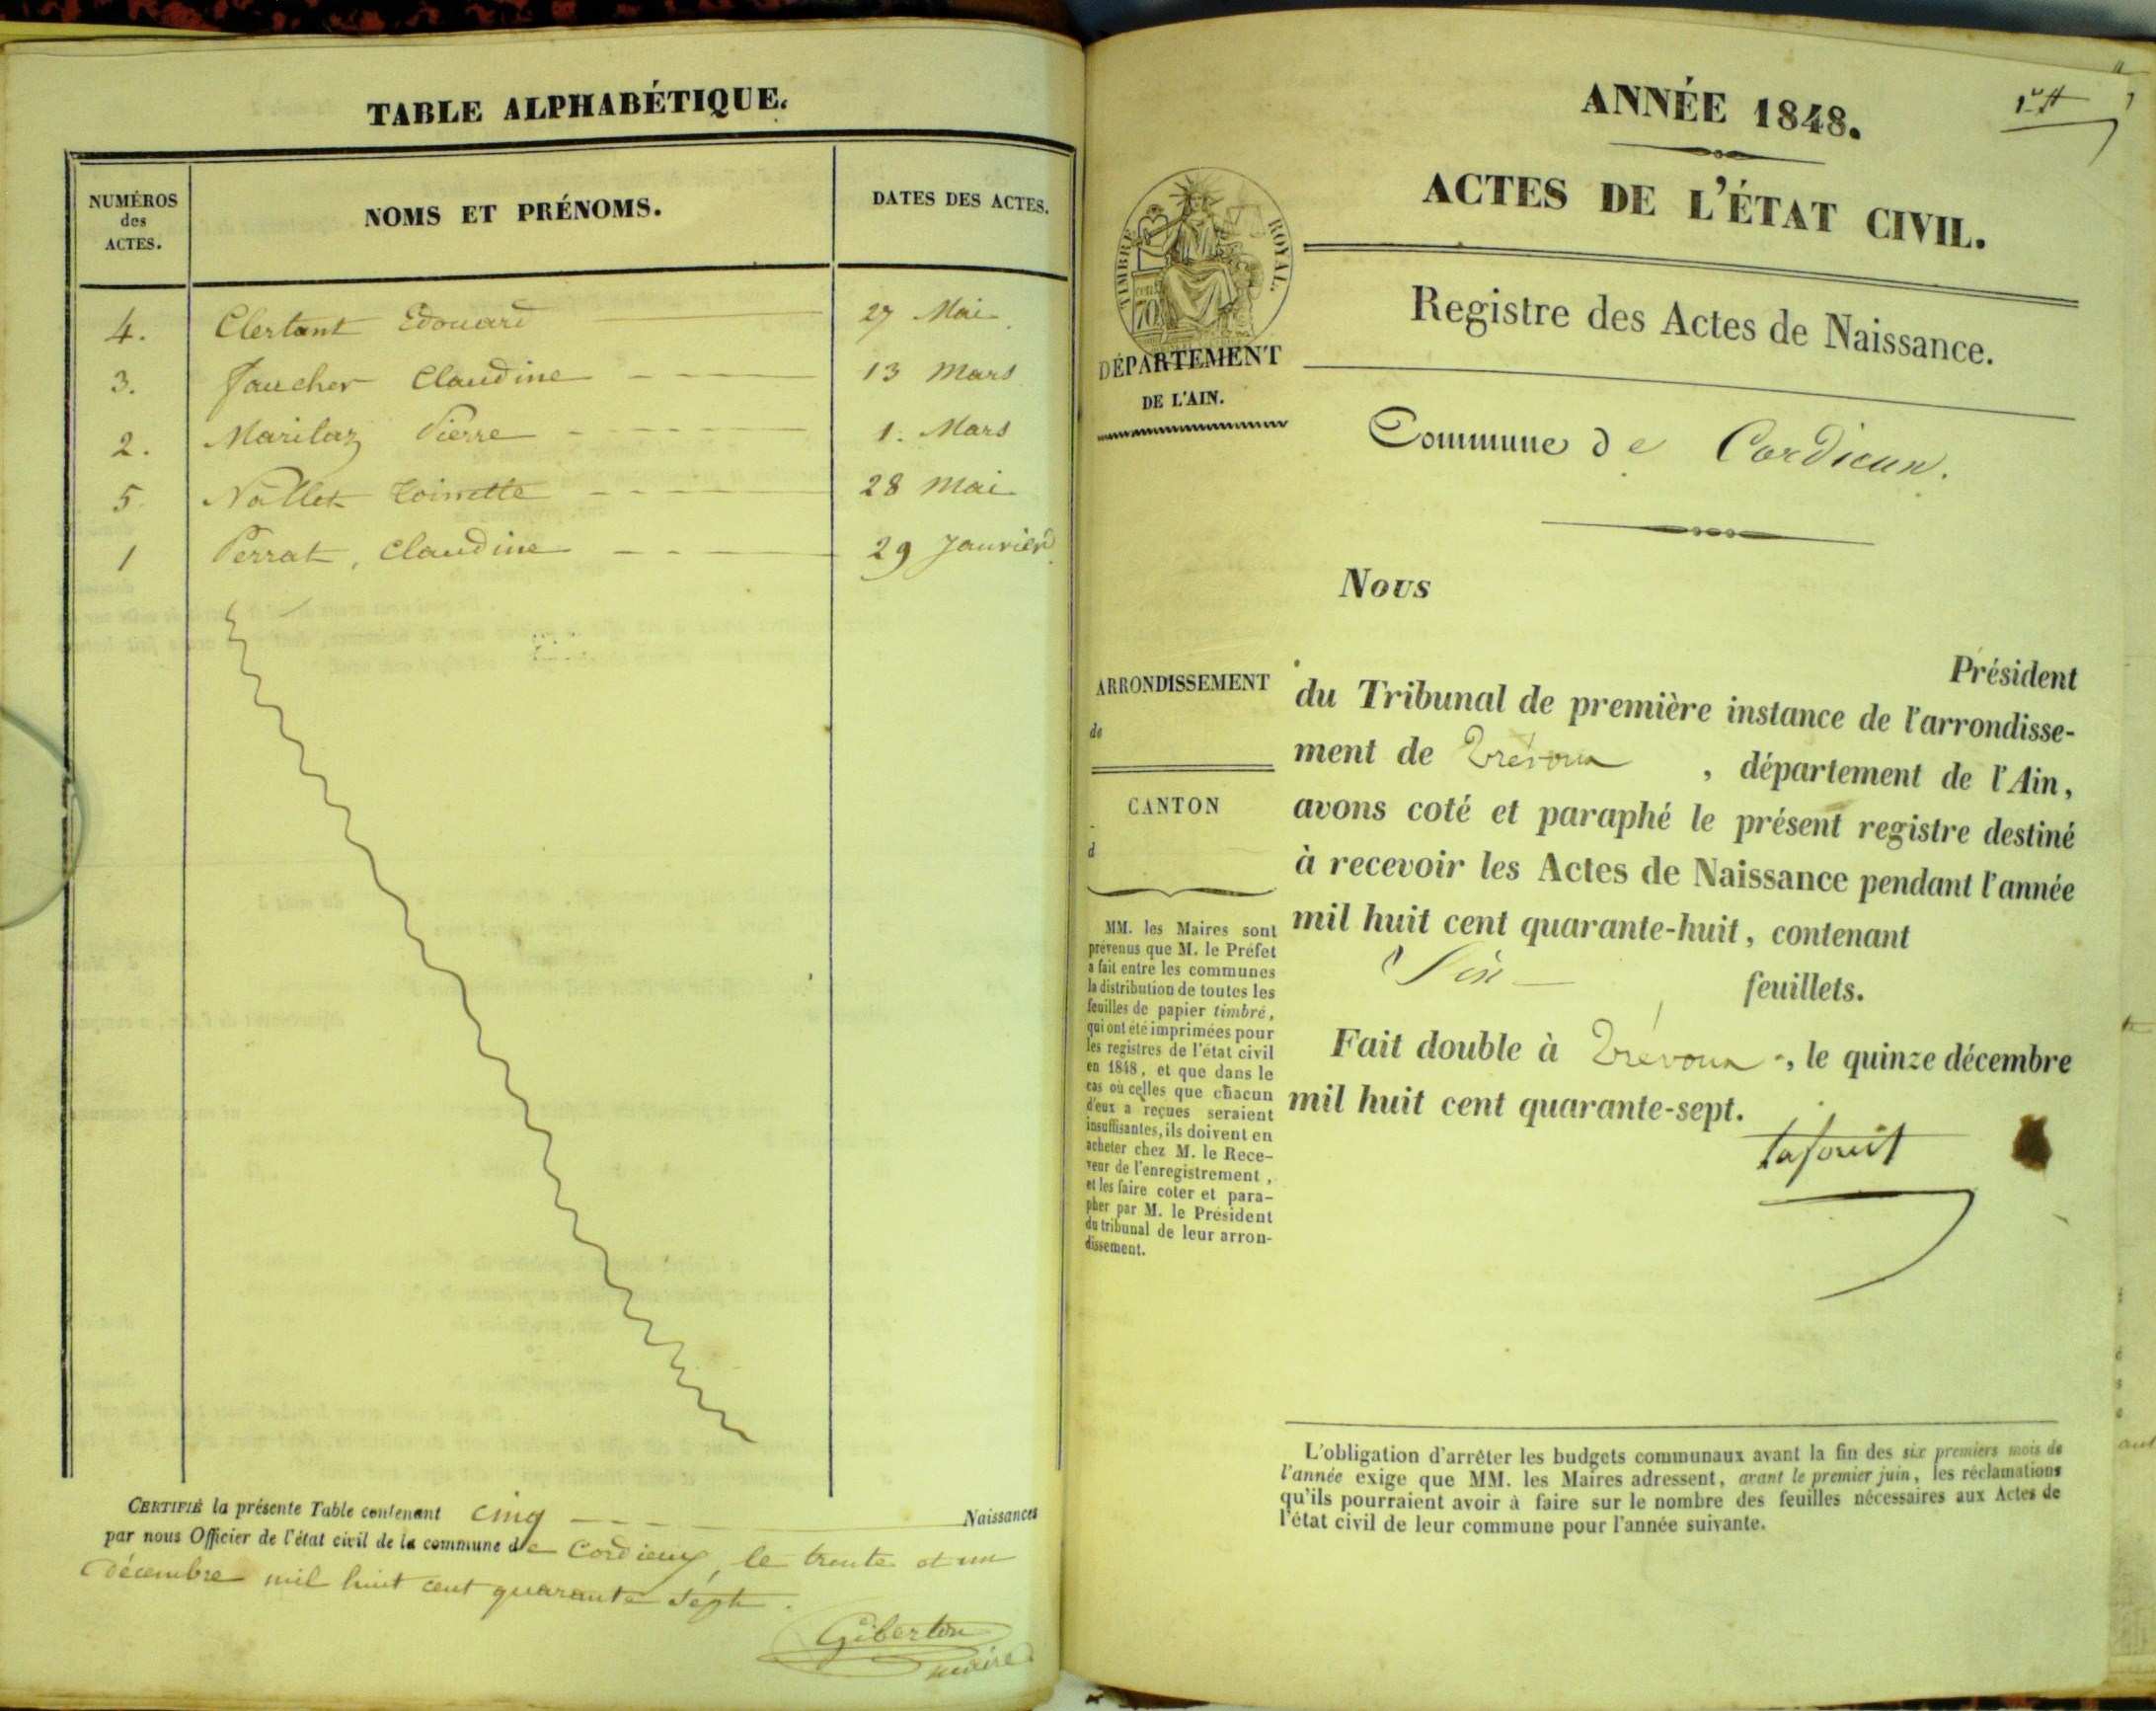 TABLE ALPHABÉTIQUE.
NUMÉROS des ACTES.
NOMS ET PRÉNOMS.
DATES DES ACTES.
4. Clertant Edouard 27 Mai
3. Faucher Claudine 13 Mars
2. Marilaz Pierre 1. Mars
5 Nallet Toinette 28 Mai
1 Perrat, Claudine 29 Janvier
CERTIFIÉ la présente Table contenant cinq Naissances
par nous Officier de l'état civil de la commune de Cordieux, le trente et un
décembre mil huit cent quarante sept.
Giberton
maire
ANNÉE 1848.
ACTES DE L'ÉTAT CIVIL.
TIMBRE ROYAL.
70
DÉPARTEMENT
DE L'AIN.
Registre des Actes de Naissance.
Commune de Cordieux.
Nous
Président
du Tribunal de première instance de l'arrondisse-
ment de Trévoux, département de l'Ain,
avons coté et paraphé le présent registre destiné
à recevoir les Actes de Naissance pendant l'année
mil huit cent quarante-huit, contenant
Six feuillets.
Fait double à Trévoux, le quinze décembre
mil huit cent quarante-sept.
ARRONDISSEMENT
de
CANTON
d
MM. les Maires sont
prévenus que M. le Préfet
a fait entre les communes
la distribution de toutes les
feuilles de papier timbré,
qui ont été imprimées pour
les registres de l'état civil
en 1848, et que dans le
cas où celles que chacun
d'eux a reçues seraient
insuffisantes, ils doivent en
acheter chez M. le Rece-
veur de l'enregistrement,
et les faire coter et para-
pher par M. le Président
du tribunal de leur arron-
dissement.
L'obligation d'arrêter les budgets communaux avant la fin des six premiers mois de
l'année exige que MM. les Maires adressent, avant le premier juin, les réclamations
qu'ils pourraient avoir à faire sur le nombre des feuilles nécessaires aux Actes de
l'état civil de leur commune pour l'année suivante.